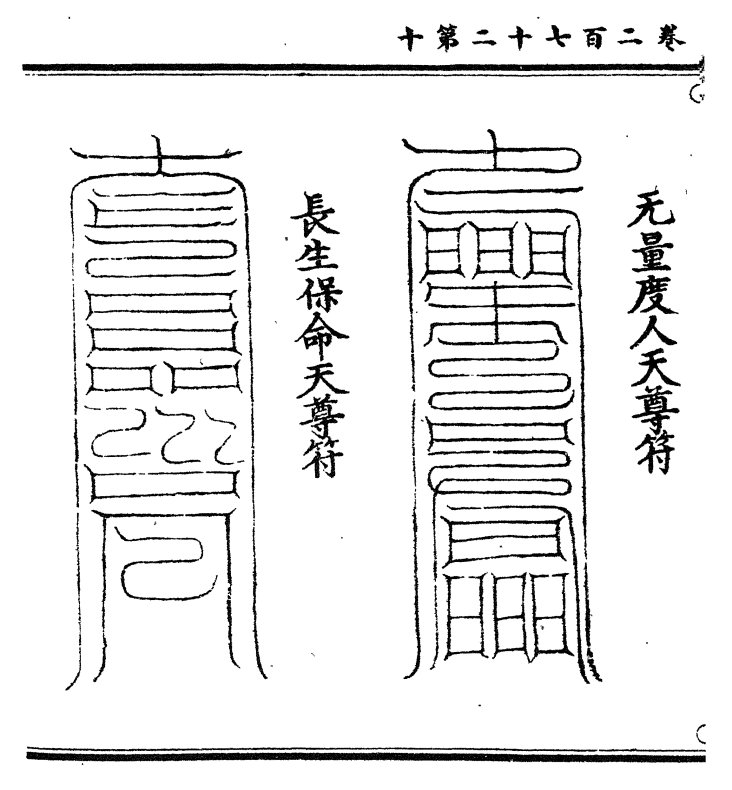 卷二百七十二第十
无量度人天尊符
長生保命天尊符